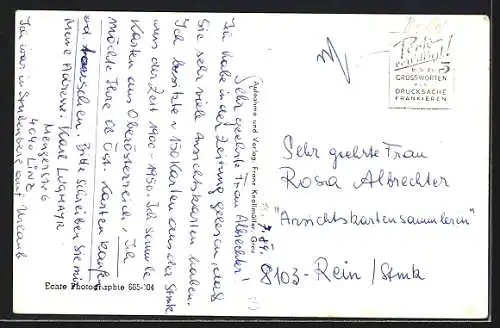 Sehr geehrte Frau Albrechter!
Ich habe in der Zeitung gelesen, daß
Sie sehr viele Ansichtskarten haben.
Ich besitze 150 Karten aus der Stmk
aus der Zeit 1900-1950. Ich sammle
Karten aus Oberösterreich. Ich
möchte Ihre OÖ Öst. Karten kaufen
od. tauschen. Bitte schreiben Sie mir
Meine Adresse: Karl Lugmayr
Mengerstr 6
4040 Linz
Ich war in Stubenberg auf Urlaub
Echte Photographie 665-104
Aufnahme und Verlag: Franz Knollmüller, Graz
Porto
ermäßigt!
5
GRUSSWORTEN
ALS
DRUCKSACHE
FRANKIEREN
Sehr geehrte Frau
Rosa Albrechter
"Ansichtskartensammlerin"
8103-Rein /Stmk